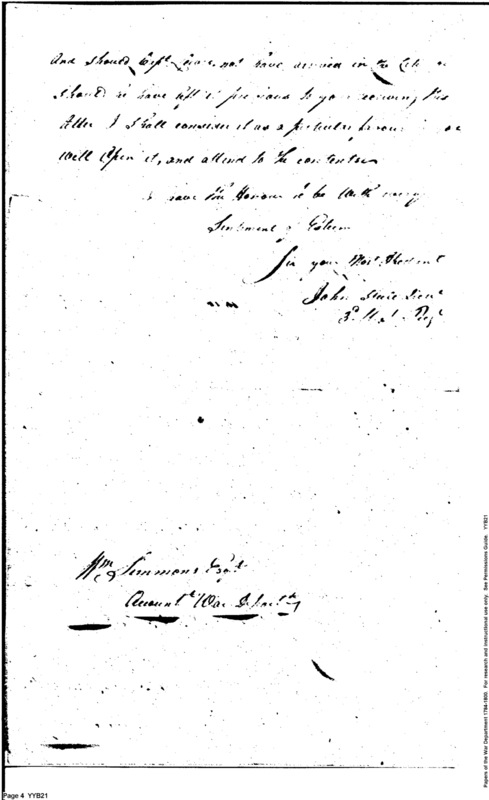 And should Capt not have arrived in the City or
should he have left it previous to your receiving this
Letter I shall consider it as a particular favour
will Open it, and attend to the contents
I have the Honour to be with every
Sentiment of Esteem
Sir your Most Obedient
John Lieut
3d
Wm Simmons Esqr
Accountt War Departt
Page 4 YYB21
Papers of the War Department 1784-1800. For research and instructional use only. See Permissions Guide. YYB21